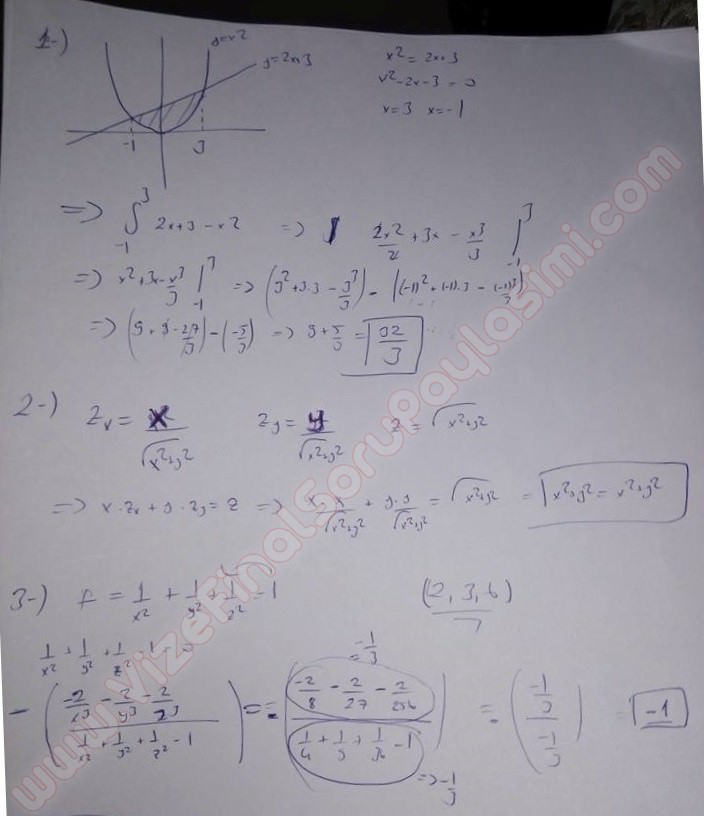 1-)
y=x2
y=2x+3
-1 3
x² = 2x+3
x²-2x-3=0
x=3 x=-1
=> ∫₋₁³ 2x+3-x2 => 2x²/2 + 3x - x³/3 |₋₁³
=> x²+3x-x³/3 |₋₁³ => (3²+3.3-3³/3) - ((-1)²+(-1).3-(-1)³/3)
=> (9+9-27/3)-(-5/3) => 9+5/3 = 32/3
2-) Zx = x/√x²+y² Zy = y/√x²+y² z = √x²+y²
=> x.Zx + y.Zy = z => x.x/√x²+y² + y.y/√x²+y² = √x²+y² = x²+y² = x²+y²
3-) f = 1/x² + 1/y² + 1/z² - 1 (2,3,6)/7
1/x² + 1/y² + 1/z² - 1 = 0
-((-2/x³ - 2/y³ - 2/z³)/(1/x² + 1/y² + 1/z² - 1)) = -((-2/8 - 2/27 - 2/256)/(1/4 + 1/9 + 1/36 - 1)) = -((-1/3)/(-1/3)) = -1
= -1/3
=> -1/3
www.VizeFinalSoruPaylasimi.com